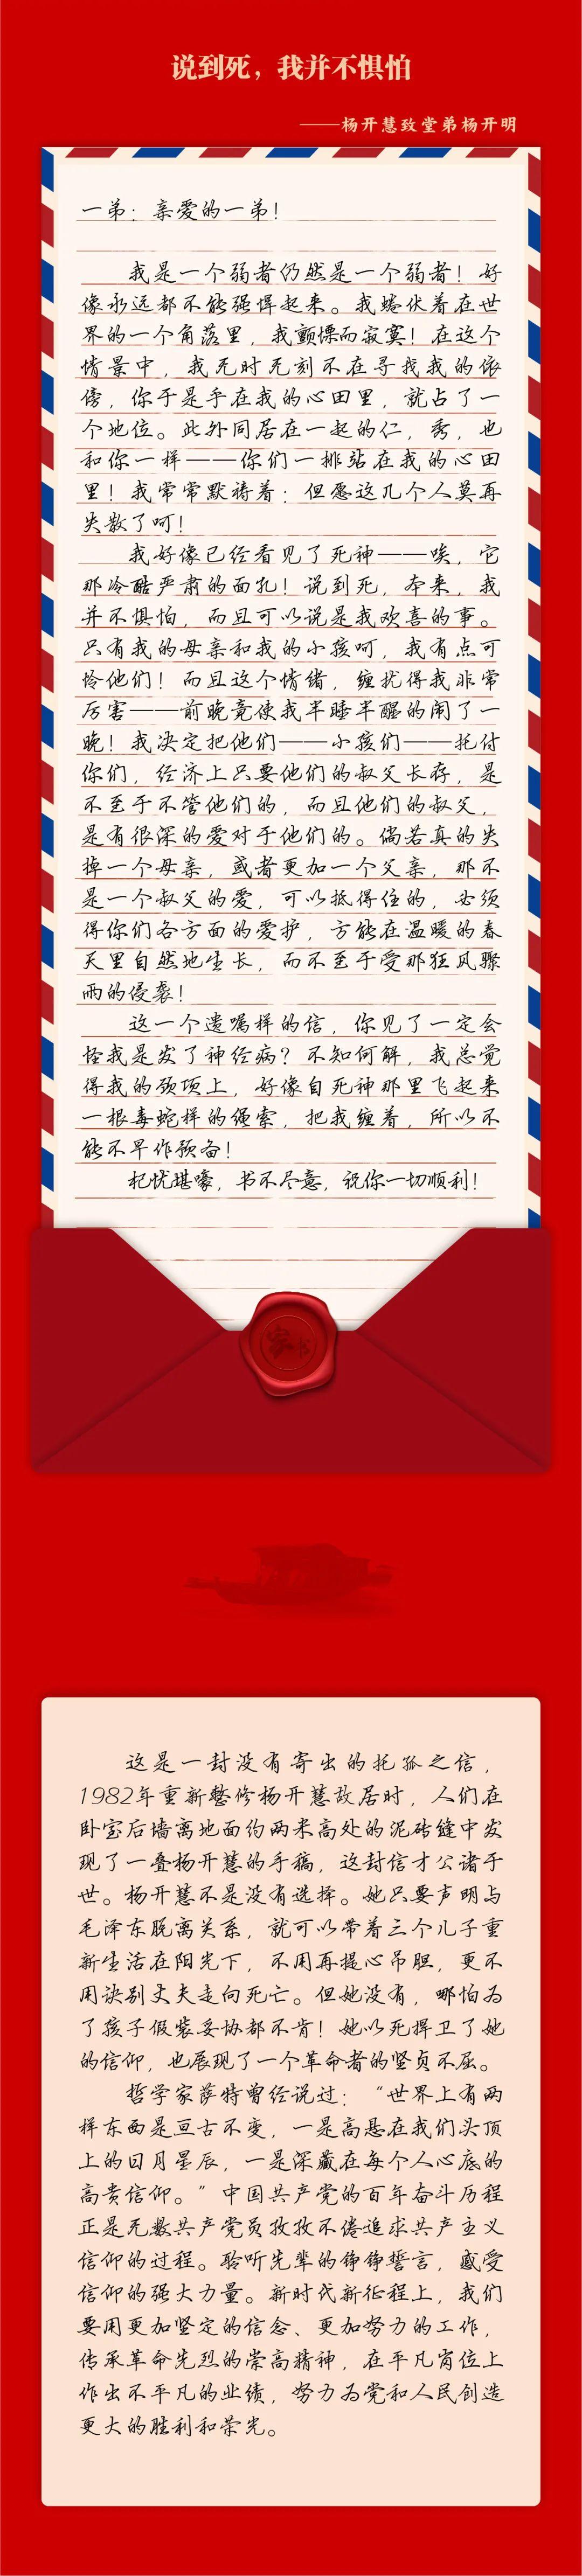 说到死，我并不惧怕
——杨开慧致堂弟杨开明
一弟：亲爱的一弟！
我是一个弱者仍然是一个弱者！好
像永远都不能强悍起来。我蜷伏着在世
界的一个角落里，我颤慄而寂寞！在这个
情景中，我无时无刻不在寻找我的依
傍，你于是乎在我的心田里，就占了一
个地位。此外同居在一起的仁，秀，也
和你一样——你们一排站在我的心田
里！我常常默祷着：但愿这几个人莫再
失散了呵！
我好像已经看见了死神——唉，它
那冷酷严肃的面孔！说到死，本来，我
并不惧怕，而且可以说是我欢喜的事。
只有我的母亲和我的小孩呵，我有点可
怜他们！而且这个情绪，缠扰得我非常
厉害——前晚竟使我半睡半醒的闹了一
晚！我决定把他们——小孩们——托付
你们，经济上只要他们的叔父长存，是
不至于不管他们的，而且他们的叔父，
是有很深的爱对于他们的。倘若真的失
掉一个母亲，或者更加一个父亲，那不
是一个叔父的爱，可以抵得住的，必须
得你们各方面的爱护，方能在温暖的春
天里自然地生长，而不至于受那狂风骤
雨的侵袭！
这一个遗嘱样的信，你见了一定会
怪我是发了神经病？不知何解，我总觉
得我的颈项上，好像自死神那里飞起来
一根毒蛇样的绳索，把我缠着，所以不
能不早作预备！
杞忧堪嚎，书不尽意，祝你一切顺利！
家书
这是一封没有寄出的托孤之信，
1982年重新整修杨开慧故居时，人们在
卧室后墙离地面约两米高处的泥砖缝中发
现了一叠杨开慧的手稿，这封信才公诸于
世。杨开慧不是没有选择。她只要声明与
毛泽东脱离关系，就可以带着三个儿子重
新生活在阳光下，不用再提心吊胆，更不
用诀别丈夫走向死亡。但她没有，哪怕为
了孩子假装妥协都不肯！她以死捍卫了她
的信仰，也展现了一个革命者的坚贞不屈。
哲学家萨特曾经说过：“世界上有两
样东西是亘古不变，一是高悬在我们头顶
上的日月星辰，一是深藏在每个人心底的
高贵信仰。”中国共产党的百年奋斗历程
正是无数共产党员孜孜不倦追求共产主义
信仰的过程。聆听先辈的铮铮誓言，感受
信仰的强大力量。新时代新征程上，我们
要用更加坚定的信念、更加努力的工作，
传承革命先烈的崇高精神，在平凡岗位上
作出不平凡的业绩，努力为党和人民创造
更大的胜利和荣光。